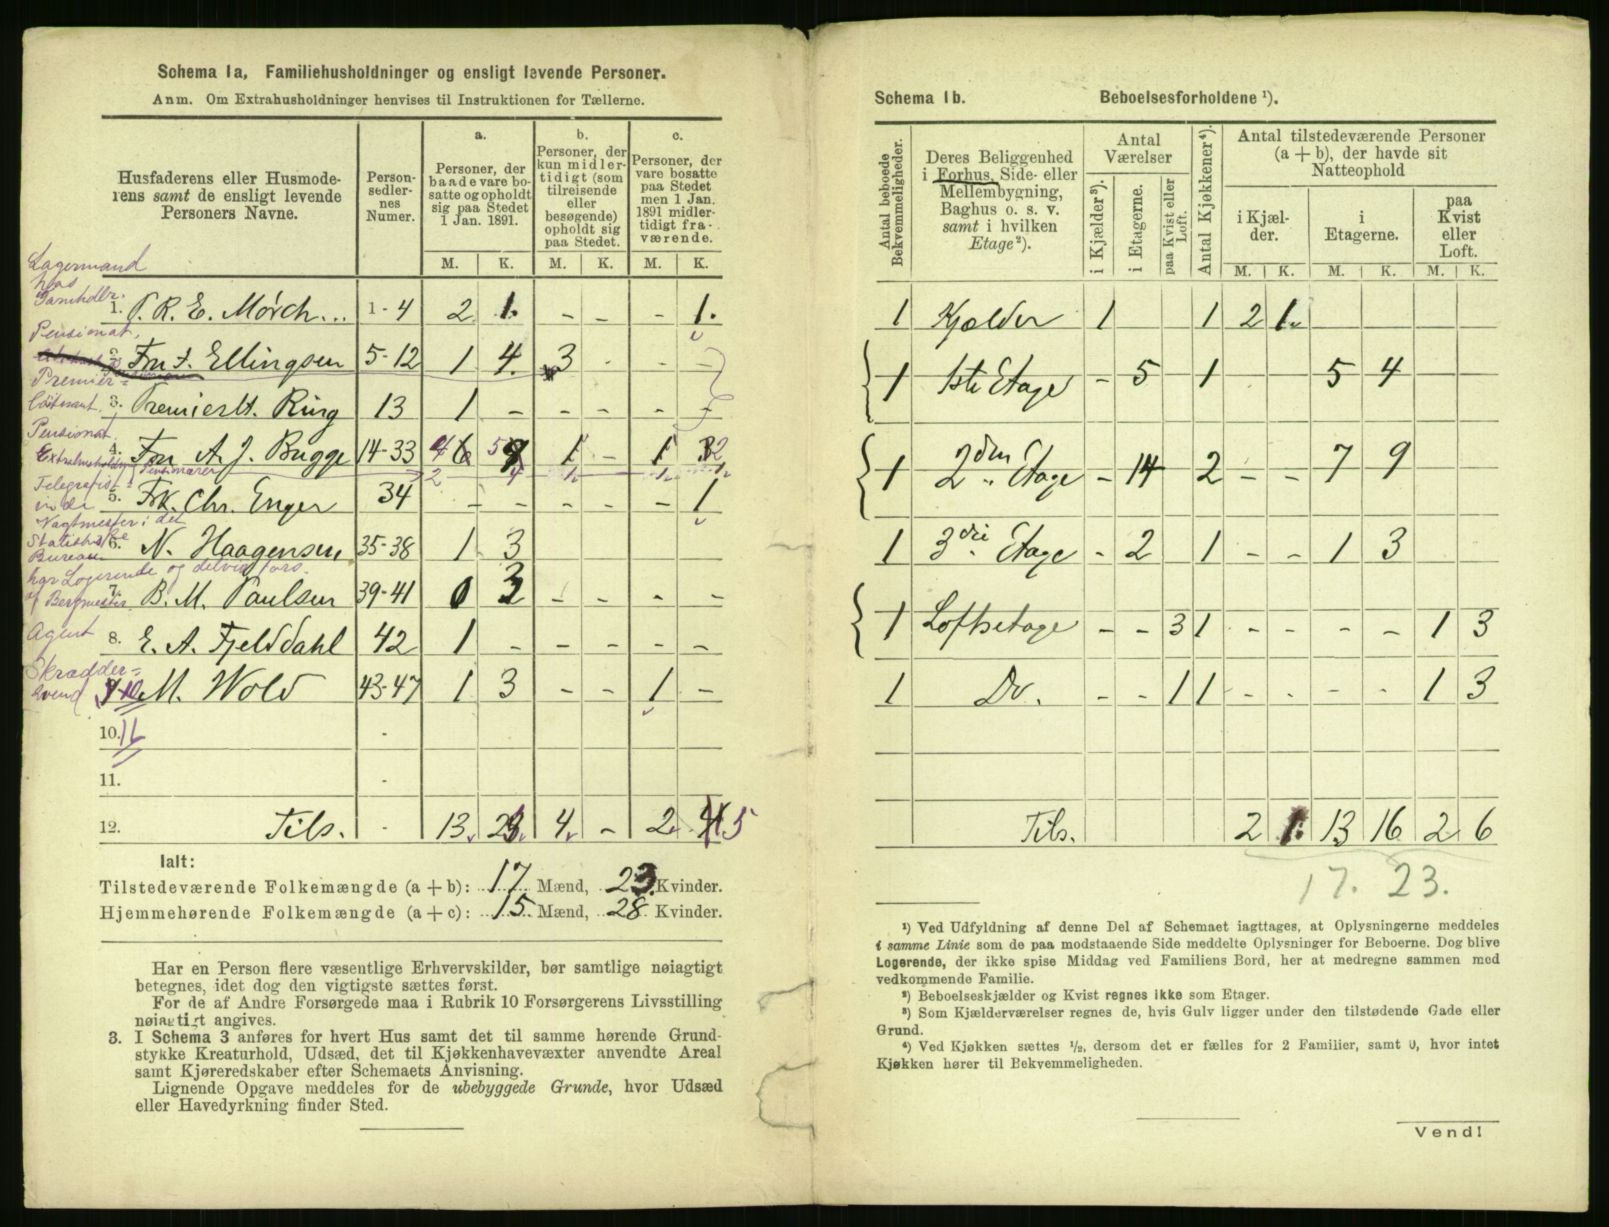 Schema 1a, Familiehusholdninger og ensligt levende Personer.
Anm. Om Extrahusholdninger henvises til Instruktionen for Tællerne.
Husfaderens eller Husmode-
rens samt de ensligt levende
Personers Navne.
Person-
sedler-
nes
Numer.
a.
Personer, der
baade vare bo-
satte og opholdt
sig paa Stedet
1 Jan. 1891.
b.
Personer, der
kun midler-
tidigt (som
tilreisende
eller
besøgende)
opholdt sig
paa Stedet.
c.
Personer, der
vare bosatte
paa Stedet
men 1 Jan.
1891 midler-
tidigt fra-
værende.
M. K. M. K. M. K.
Lagermand
hos
1. P. R. E. Mørch... 1-4 2 1. - - - 1.
Pensionat.
2. Fru F. Ellingsen 5-12 1 4. 3 - - -
Premier=
3. Premierlt. Ring 13 1 - - - - -
Pensionat
4. Fru A. J. Bugge 14-33 4 5 1 - 1 2
Pensionærer 2 1 1
Telegrafist=
inde
5. Frk. Chr. Enger 34 - - - - - 1
Vagtmester i det
Statistiske
Bureau
6. N. Haagensen 35-38 1 3
har Logerende og delvis fors.
af Bergmester
7. B. M. Paulsen 39-41 0 3 - - - -
Agent
8. E. A. Fjelddahl 42 1 - - - - -
Skrædder=
svend
9-10 M. Wold 43-47 1 3 - - 1 -
10. 16 -
11. -
12. Tils. - 13 23. 4. - 2. 5
Ialt:
Tilstedeværende Folkemængde (a + b): 17 Mænd, 23. Kvinder.
Hjemmehørende Folkemængde (a + c): 15 Mænd, 28 Kvinder.
Har en Person flere væsentlige Erhvervskilder, bør samtlige nøiagtigt
betegnes, idet dog den vigtigste sættes først.
For de af Andre Forsørgede maa i Rubrik 10 Forsørgerens Livsstilling
nøiagtigt angives.
3. I Schema 3 anføres for hvert Hus samt det til samme hørende Grund-
stykke Kreaturhold, Udsæd, det til Kjøkkenhavevæxter anvendte Areal
samt Kjøreredskaber efter Schemaets Anvisning.
Lignende Opgave meddeles for de ubebyggede Grunde, hvor Udsæd
eller Havedyrkning finder Sted.
Schema 1b. Beboelsesforholdene ¹).
Antal beboede
Bekvemmeligheder.
Deres Beliggenhed
i Forhus, Side- eller
Mellembygning,
Baghus o. s. v.
samt i hvilken
Etage²).
Antal
Værelser
i Kjælder³).
i Etagerne.
paa Kvist eller
Loft.
Antal Kjøkkener⁴).
Antal tilstedeværende Personer
(a + b), der havde sit
Natteophold
i Kjæl-
der.
i
Etagerne.
paa
Kvist
eller
Loft.
M. K. M. K. M. K.
1 Kjælder 1 1 2 1.
1 1ste Etage - 5 1 5 4
1 2den Etage - 14 2 - - 7 9
1 3die Etage - 2 1 - - 1 3
1 Loftsetage - - 3 1 - - - - 1 3
1 Do. - - 1 1 - - - - 1 3
Tils. 2 1. 13 16 2 6
17. 23.
¹) Ved Udfyldning af denne Del af Schemaet iagttages, at Oplysningerne meddeles
i samme Linie som de paa modstaaende Side meddelte Oplysninger for Beboerne. Dog blive
Logerende, der ikke spise Middag ved Familiens Bord, her at medregne sammen med
vedkommende Familie.
²) Beboelseskjælder og Kvist regnes ikke som Etager.
³) Som Kjælderværelser regnes de, hvis Gulv ligger under den tilstødende Gade eller
Grund.
⁴) Ved Kjøkken sættes ½, dersom det er fælles for 2 Familier, samt 0, hvor intet
Kjøkken hører til Bekvemmeligheden.
Vend!